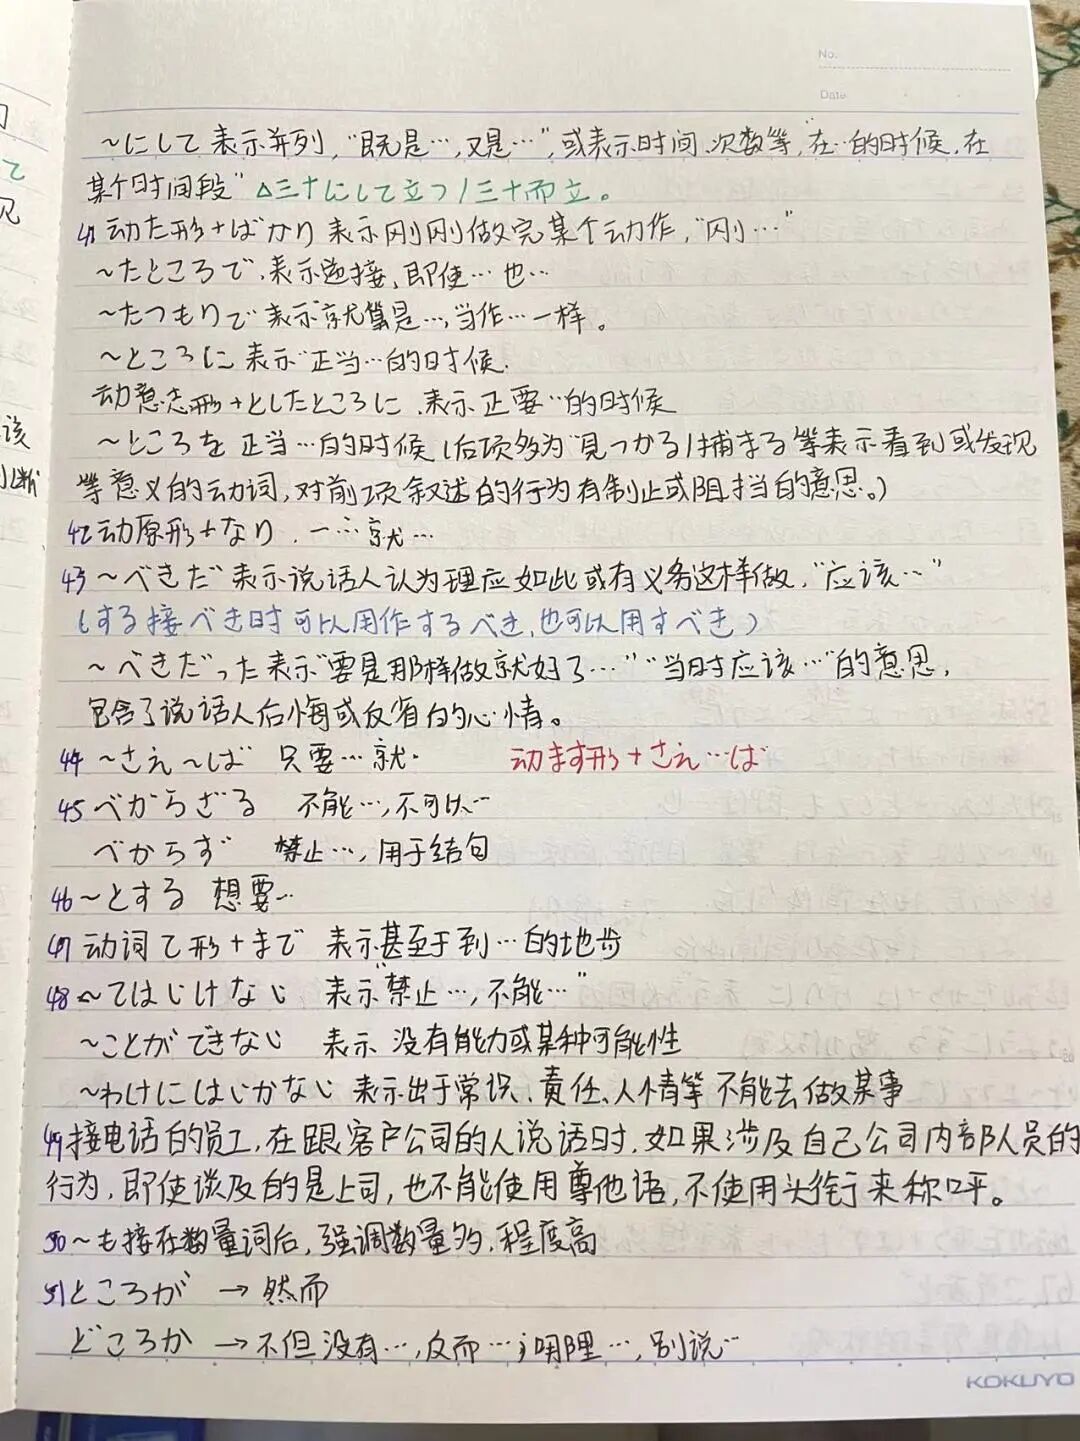 No.
Date
〜にして 表示并列,“既是…,又是…”,或表示时间、次数等,“在…的时候,在
某个时间段” △三十にして立つ/三十而立。
41 动た形+ばかり 表示刚刚做完某个动作,“刚…”
〜たところで,表示逆接,即使…也…
〜たつもりで 表示就算是…,当作…一样。
〜ところに 表示“正当…的时候.
动意志形+としたところに,表示正要…的时候
〜ところを 正当…的时候(后项多为“見つかる/捕まる等表示看到或发现
等意义的动词,对前项叙述的行为有制止或阻挡的意思。)
42 动原形+なり. 一…就…
43 〜べきだ 表示说话人认为理应如此或有义务这样做,“应该…”
(する接べき时可以用作するべき,也可以用すべき)
〜べきだった表示“要是那样做就好了…”“当时应该…”的意思,
包含了说话人后悔或反省的心情。
44 〜さえ〜ば 只要…就. 动ます形+さえ…ば
45 べからざる 不能…,不可以…
べからず 禁止…,用于结句
46 〜とする 想要…
47 动词て形+まで 表示甚至于到…的地步
48 〜てはいけない 表示“禁止…,不能…”
〜ことができない 表示 没有能力或某种可能性
〜わけにはいかない 表示出于常识、责任、人情等 不能去做某事
49 接电话的员工,在跟客户公司的人说话时,如果涉及自己公司内部人员的
行为,即使谈及的是上司,也不能使用尊他语,不使用头衔来称呼。
50 〜も接在数量词后,强调数量多,程度高
51 ところが → 然而
どころか → 不但没有…,反而…;哪里…,别说…
KOKUYO